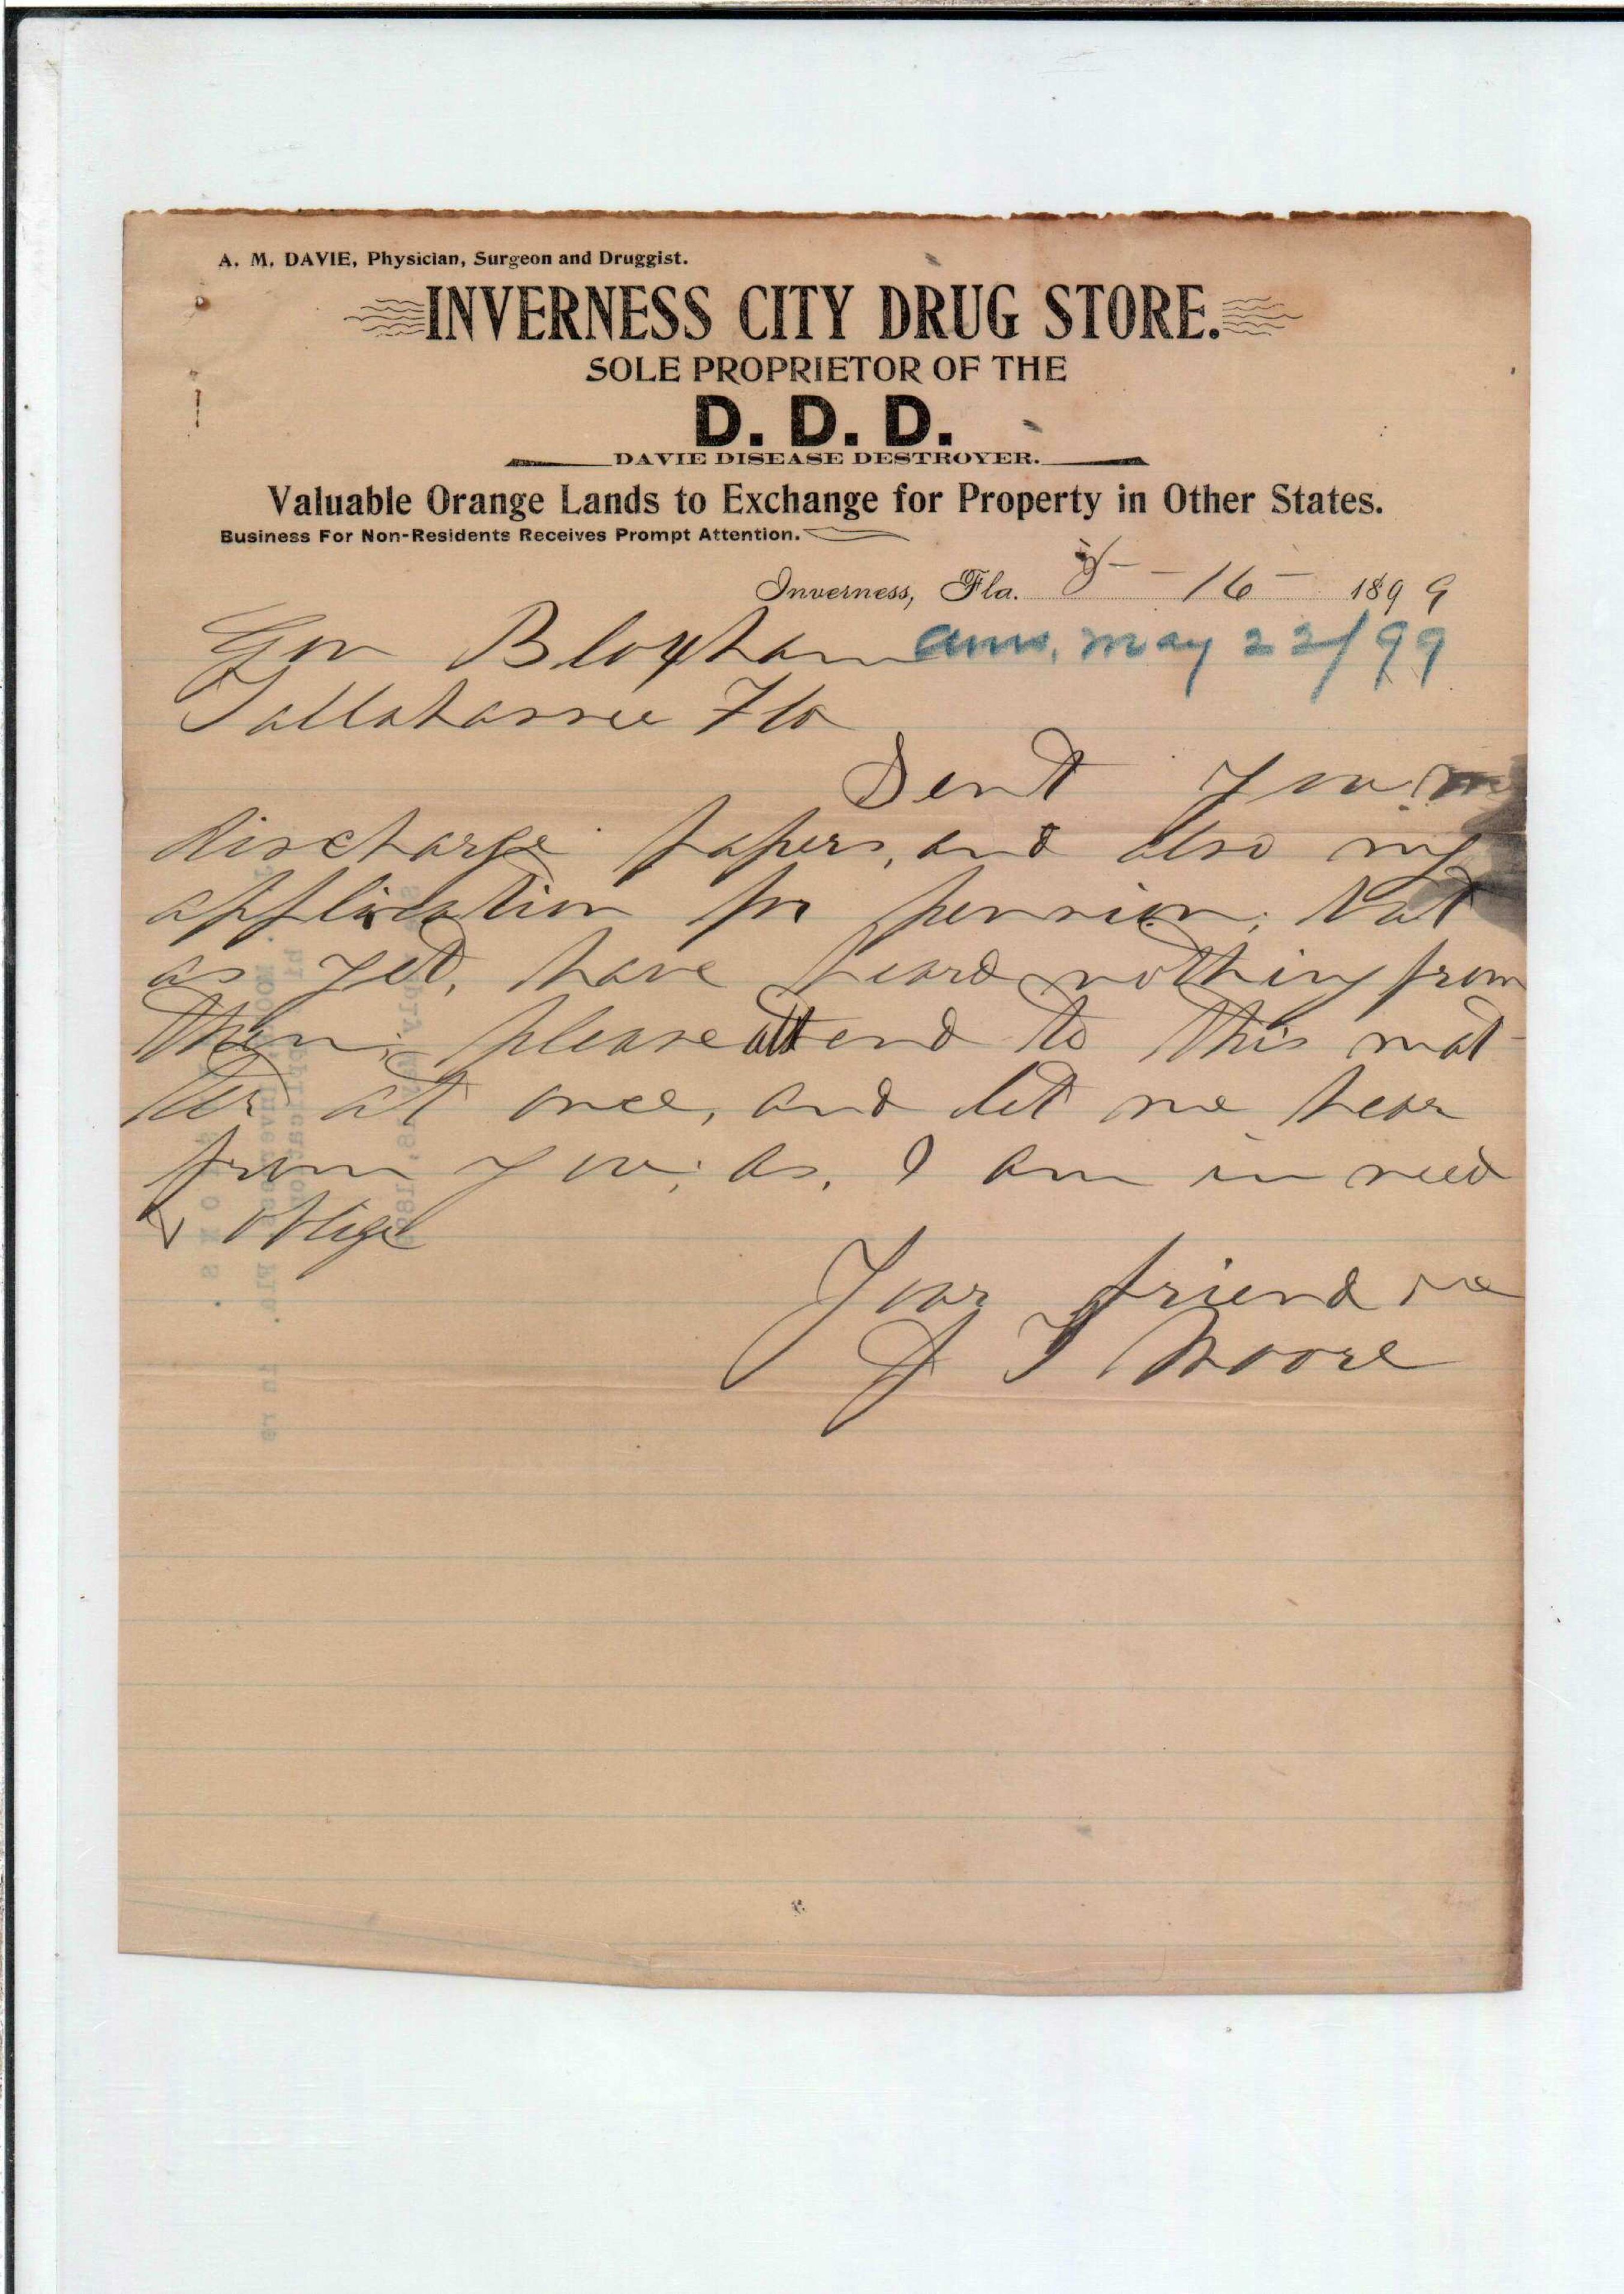 A. M. DAVIE, Physician, Surgeon and Druggist.
INVERNESS CITY DRUG STORE.
SOLE PROPRIETOR OF THE
D. D. D.
DAVIE DISEASE DESTROYER.
Valuable Orange Lands to Exchange for Property in Other States.
Business For Non-Residents Receives Prompt Attention.
Inverness, Fla. 5 - 16 - 1899
Gov Bloxham ans. May 22/99
Tallahassee Fla
Sent you my
discharge papers, and also my
application for pension, but
as yet, have heard nothing from
them, please attend to this mat-
ter at once, and let me hear
from you, as, I am in need
& oblige
Your friend
J T Moore